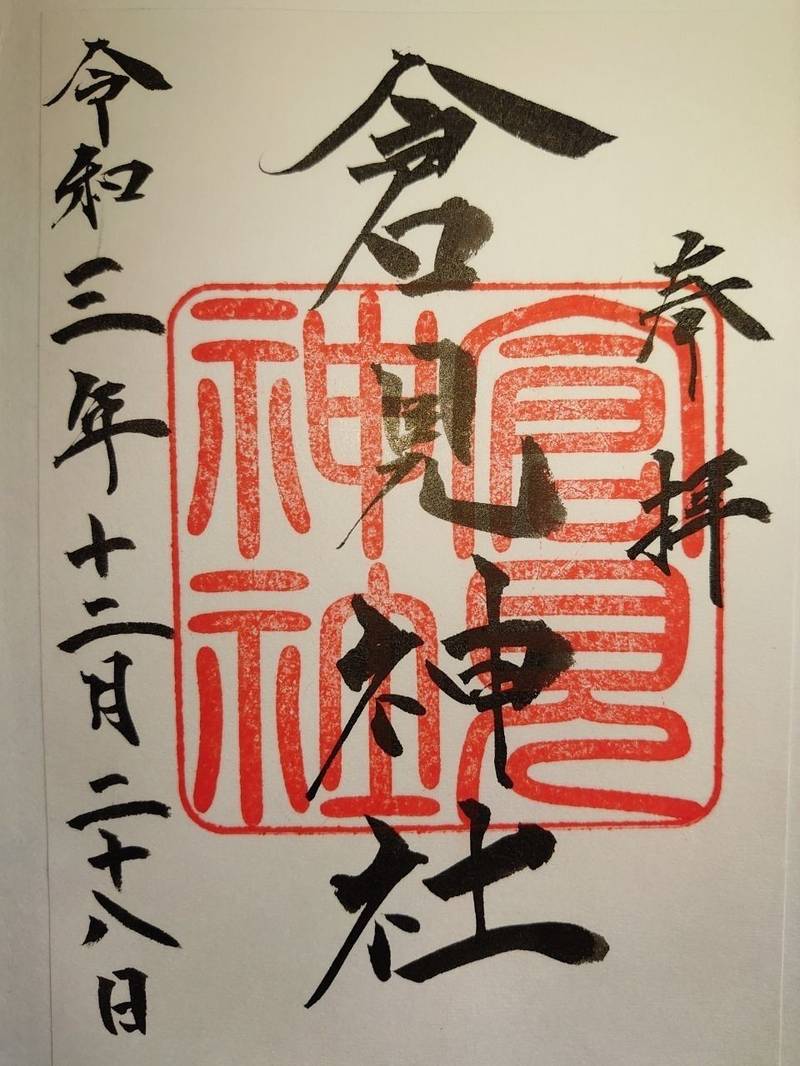 奉拝
倉見神社
倉見
神社
令和三年十二月二十八日